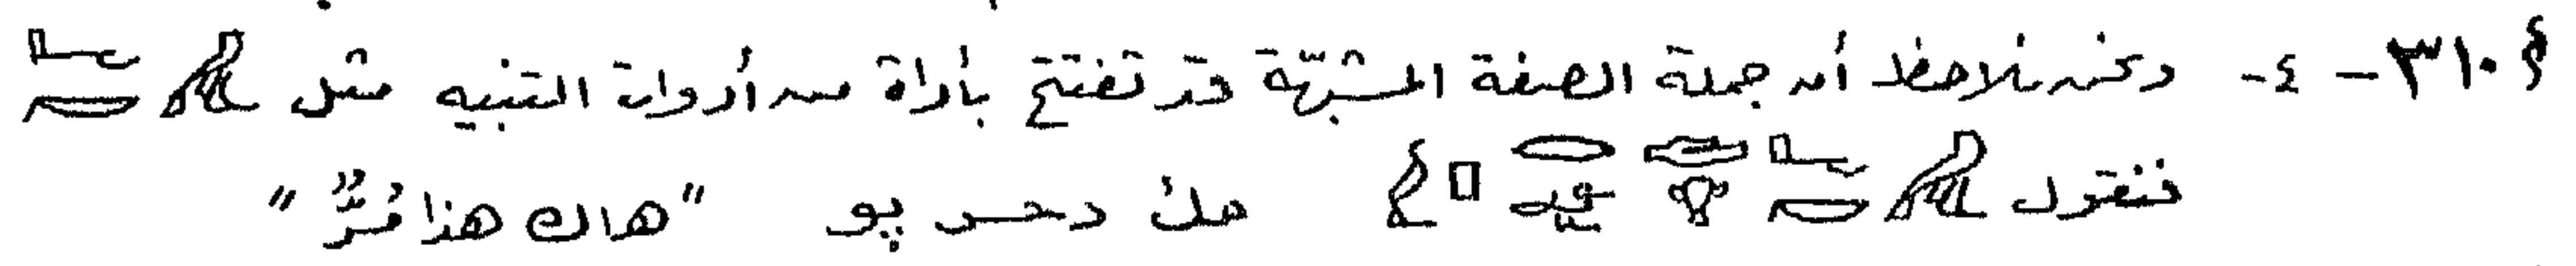 § ٣١٠ - ٤ - ونحن نلاحظ أن جملة الصفة المشبّهة قد تفتتح بأداة من أدوات التنبيه مثل 𓅓𓂝𓎡
فنقول 𓅓𓂝𓎡 حك دحر پو "هاك هذا مُرٌّ"